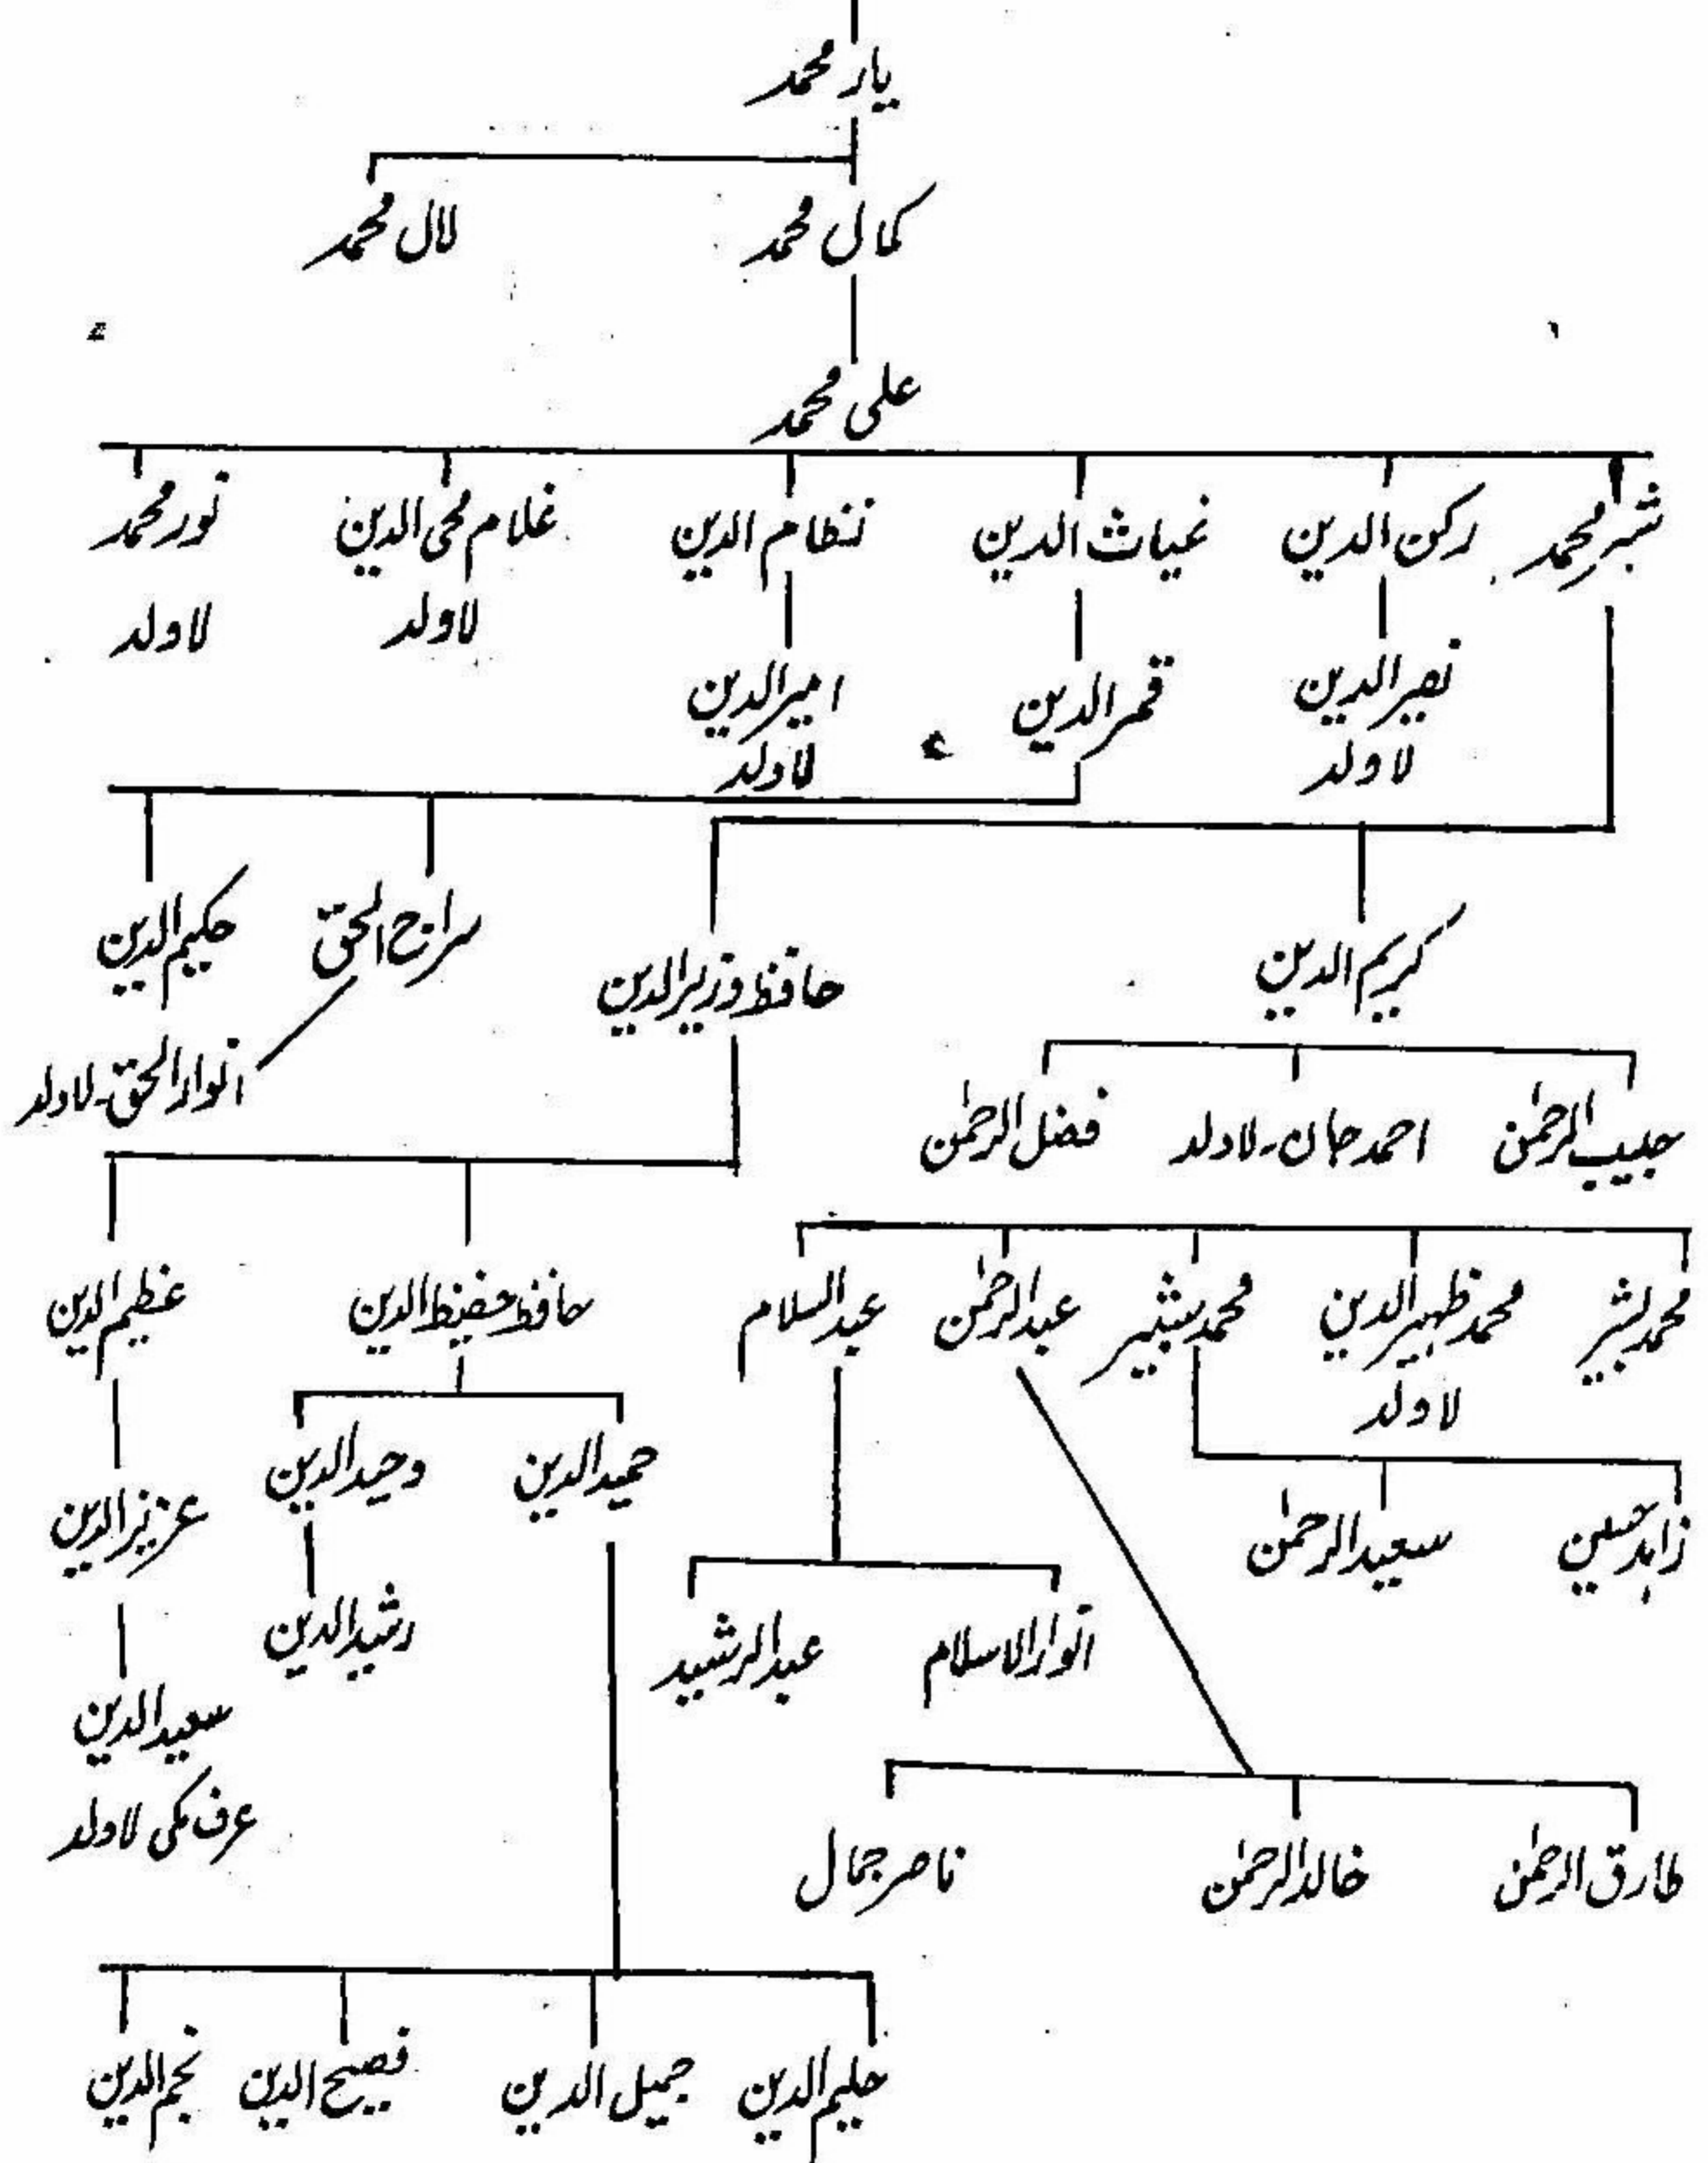 یار محمد
کمال محمد
لال محمد
علی محمد
شیر محمد
رکن الدین
غیاث الدین
نظام الدین
غلام محی الدین
نور محمد
لاولد
لاولد
نصیر الدین
قمر الدین
امیر الدین
لاولد
لاولد
کریم الدین
حافظ وزیر الدین
سراج الحق
حکیم الدین
انوار الحق۔ لاولد
حبیب الرحمٰن
احمد جان۔ لاولد
فضل الرحمٰن
محمد بشر
محمد ظہیر الدین
محمد بشیر
عبد الرحمٰن
عبد السلام
حافظ حفیظ الدین
عظیم الدین
لاولد
حمید الدین
وحید الدین
عزیز الدین
زاہد حسین
سعید الرحمٰن
انوار الاسلام
عبد الرشید
رشید الدین
سعید الدین
عرف مکی لاولد
طارق الرحمٰن
خالد الرحمٰن
ناصر جمال
حلیم الدین
جمیل الدین
فصیح الدین
نجم الدین